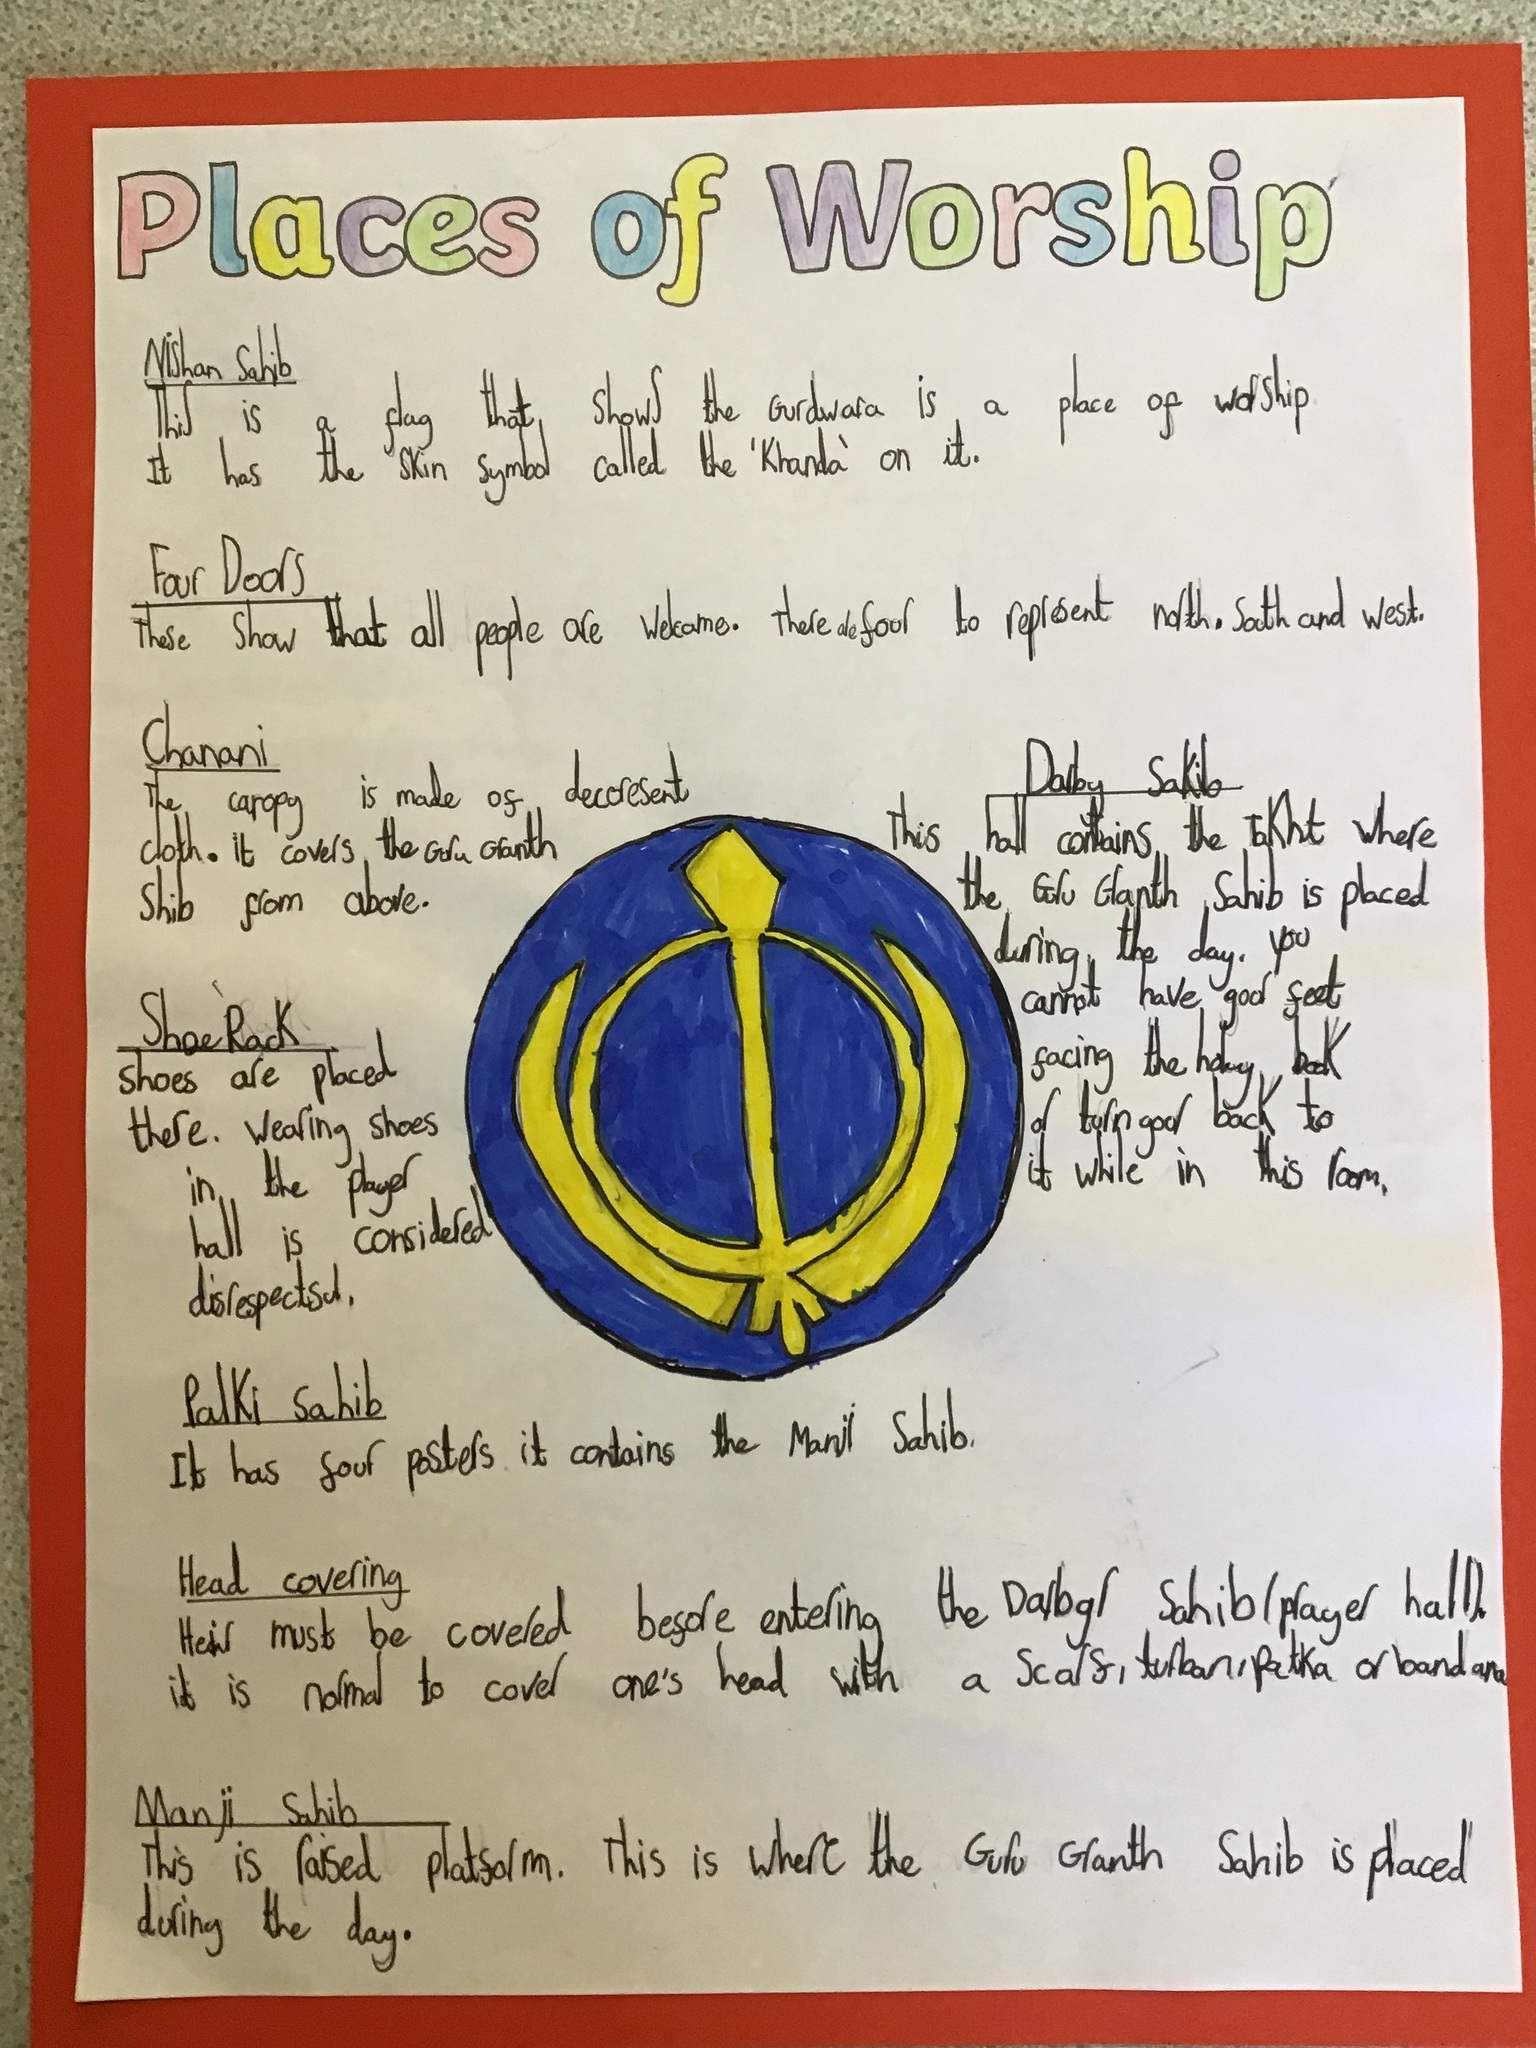 Places of Worship
Nishan Sahib
This is a flag that shows the Gurdwara is a place of worship
It has the skin symbol called the 'Khanda' on it.
Four Doors
These show that all people are welcome. There are four to represent north. South and west.
Chanani
The canopy is made of decoresent
cloth. it covers the Guru Granth
Shib from above.
Darby Sakib
This hall contains the Takht where
the Guru Granth Sahib is placed
during the day. you
cannot have your feet
facing the holey book
or turn your back to
it while in this room.
Shoe Rack
shoes are placed
there. Wearing shoes
in the player
hall is considered
disrespectful.
Palki Sahib
It has four posters it contains the Manji Sahib.
Head covering
Heir must be covered before entering the Darbar Sahib (prayer hall).
it is normal to cover one's head with a scarf, turban, patka or bandana
Manji Sahib
This is raised platform. This is where the Guru Granth Sahib is placed
during the day.